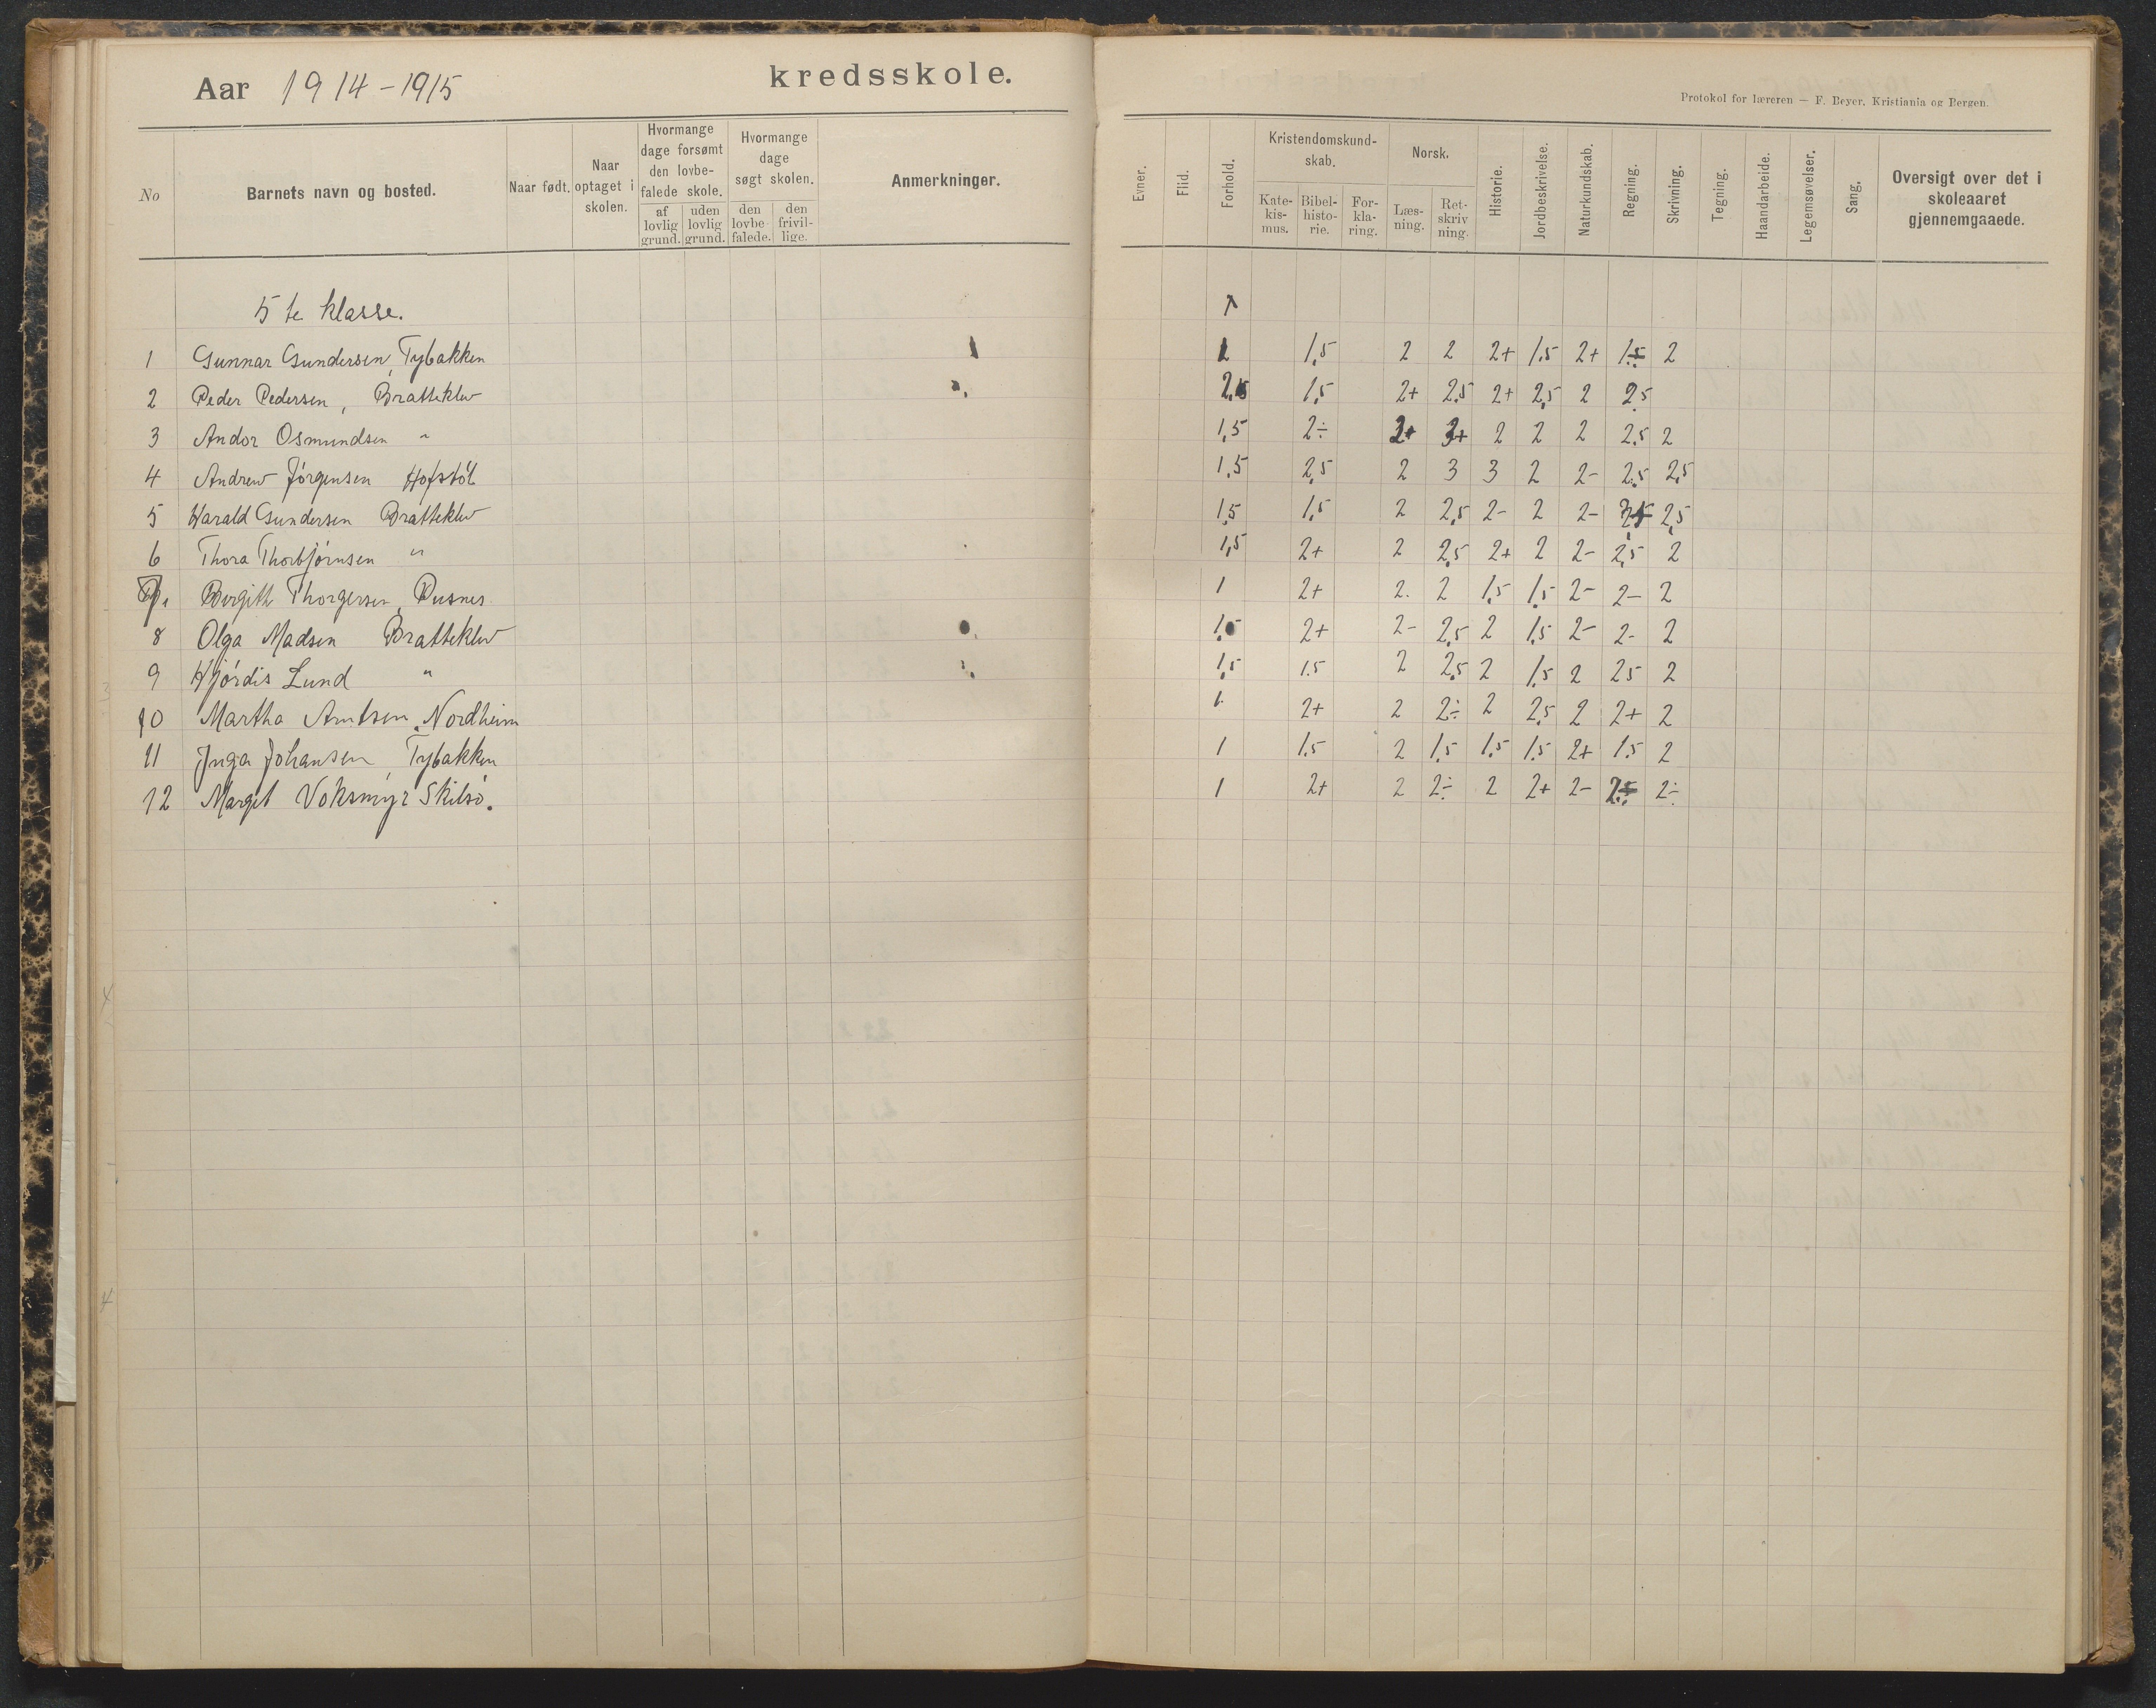 Aar 1914-1915 kredsskole.
Protokol for læreren — F. Beyer, Kristiania og Bergen.
No
Barnets navn og bosted.
Naar født.
Naar optaget i skolen.
Hvormange dage forsømt den lovbefalede skole.
af lovlig grund.
uden lovlig grund.
Hvormange dage søgt skolen.
den lovbefalede.
den frivillige.
Anmerkninger.
Evner.
Flid.
Forhold.
Kristendomskundskab.
Katekismus.
Bibelhistorie.
Forklaring.
Norsk.
Læsning.
Retskrivning.
Historie.
Jordbeskrivelse.
Naturkundskab.
Regning.
Skrivning.
Tegning.
Haandarbeide.
Legemsøvelser.
Sang.
Oversigt over det i skoleaaret gjennemgaaede.
5te klasse.
1 Gunnar Gundersen, Tybakken 1,5 2 2 2+ 1,5 2+ 2
2 Peder Pedersen, Bratteklev 1,5 2+ 2,5 2+ 2,5 2 2,5
3 Andor Osmundsen " 1,5 2÷ 2 2 2 2,5 2
4 Andrew Jörgensen Hofstöl 1,5 2,5 2 3 3 2 2- 2,5 2,5
5 Harald Gundersen Bratteklev 1,5 1,5 2 2,5 2- 2 2- 2,5
6 Thora Thorbjörnsen " 1,5 2+ 2 2,5 2+ 2 2- 2,5 2
Birgith Thorgersen, Pusnes 1 2+ 2. 2 1,5 1,5 2- 2- 2
8 Olga Madsen Bratteklev 1,5 2+ 2- 2,5 2 1,5 2- 2- 2
9 Hjördis Lund " 1,5 1.5 2 2,5 2 1,5 2 25 2
10 Martha Arntsen, Nordheim 1. 2+ 2 2÷ 2 2,5 2 2+ 2
11 Inga Johansen, Tybakken 1 1,5 2 1,5 1,5 1,5 2+ 1.5 2
12 Margit Voksmyr Skilsö. 1 2+ 2 2÷ 2 2+ 2- 2÷